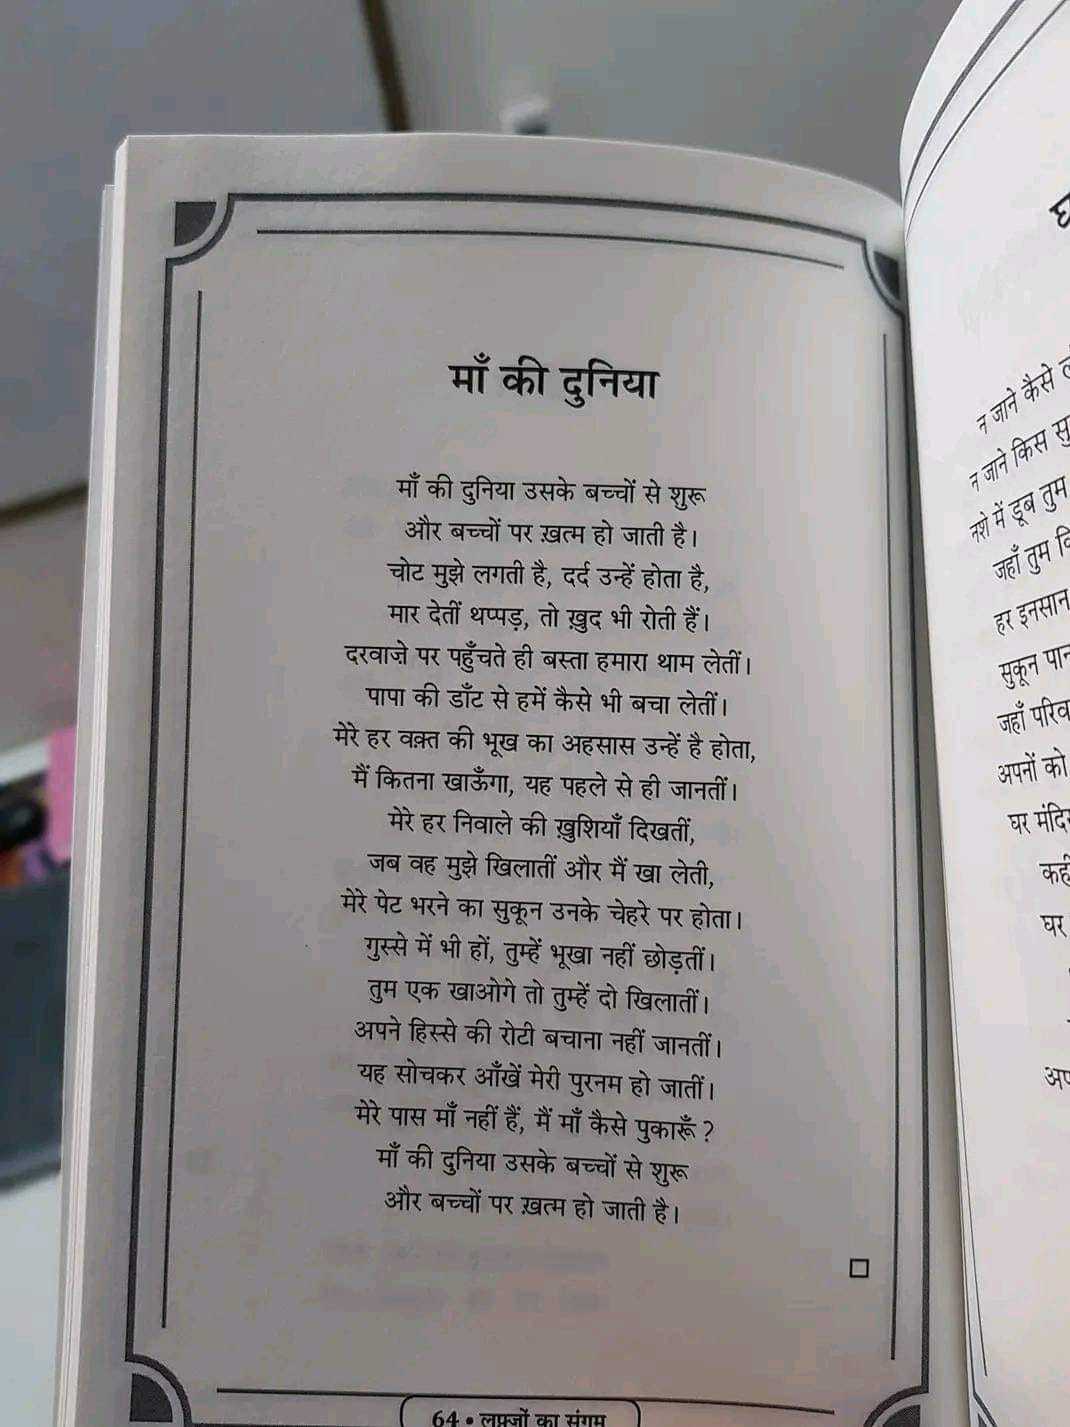 माँ की दुनिया
माँ की दुनिया उसके बच्चों से शुरू
और बच्चों पर ख़त्म हो जाती है।
चोट मुझे लगती है, दर्द उन्हें होता है,
मार देतीं थप्पड़, तो ख़ुद भी रोती हैं।
दरवाज़े पर पहुँचते ही बस्ता हमारा थाम लेतीं।
पापा की डाँट से हमें कैसे भी बचा लेतीं।
मेरे हर वक़्त की भूख का अहसास उन्हें है होता,
मैं कितना खाऊँगा, यह पहले से ही जानतीं।
मेरे हर निवाले की ख़ुशियाँ दिखतीं,
जब वह मुझे खिलातीं और मैं खा लेती,
मेरे पेट भरने का सुकून उनके चेहरे पर होता।
गुस्से में भी हों, तुम्हें भूखा नहीं छोड़तीं।
तुम एक खाओगे तो तुम्हें दो खिलातीं।
अपने हिस्से की रोटी बचाना नहीं जानतीं।
यह सोचकर आँखें मेरी पुरनम हो जातीं।
मेरे पास माँ नहीं हैं, मैं माँ कैसे पुकारूँ ?
माँ की दुनिया उसके बच्चों से शुरू
और बच्चों पर ख़त्म हो जाती है।
64 • लफ़्ज़ों का संगम
न जाने कैसे
न जाने किस
नशे में डूब तुम
जहाँ तुम
हर इनसान
सुकून
जहाँ
अपनों को
घर
घर